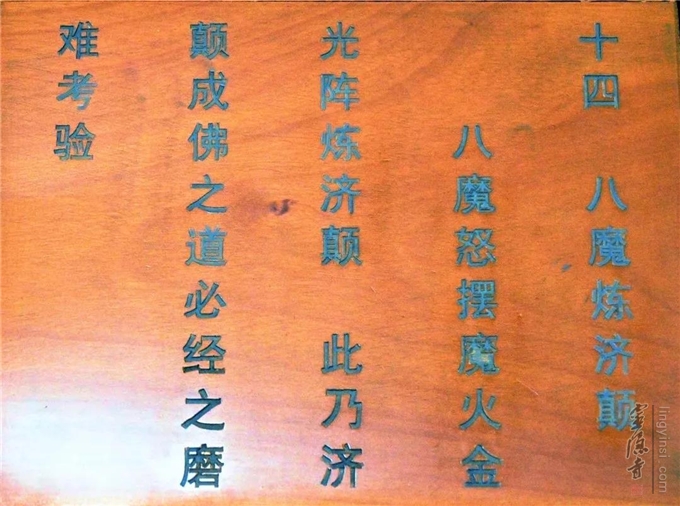 十四 八魔炼济颠
八魔怒摆魔火金
光阵炼济颠 此乃济
颠成佛之道必经之磨
难考验
灵隐寺
lingyinsi.com